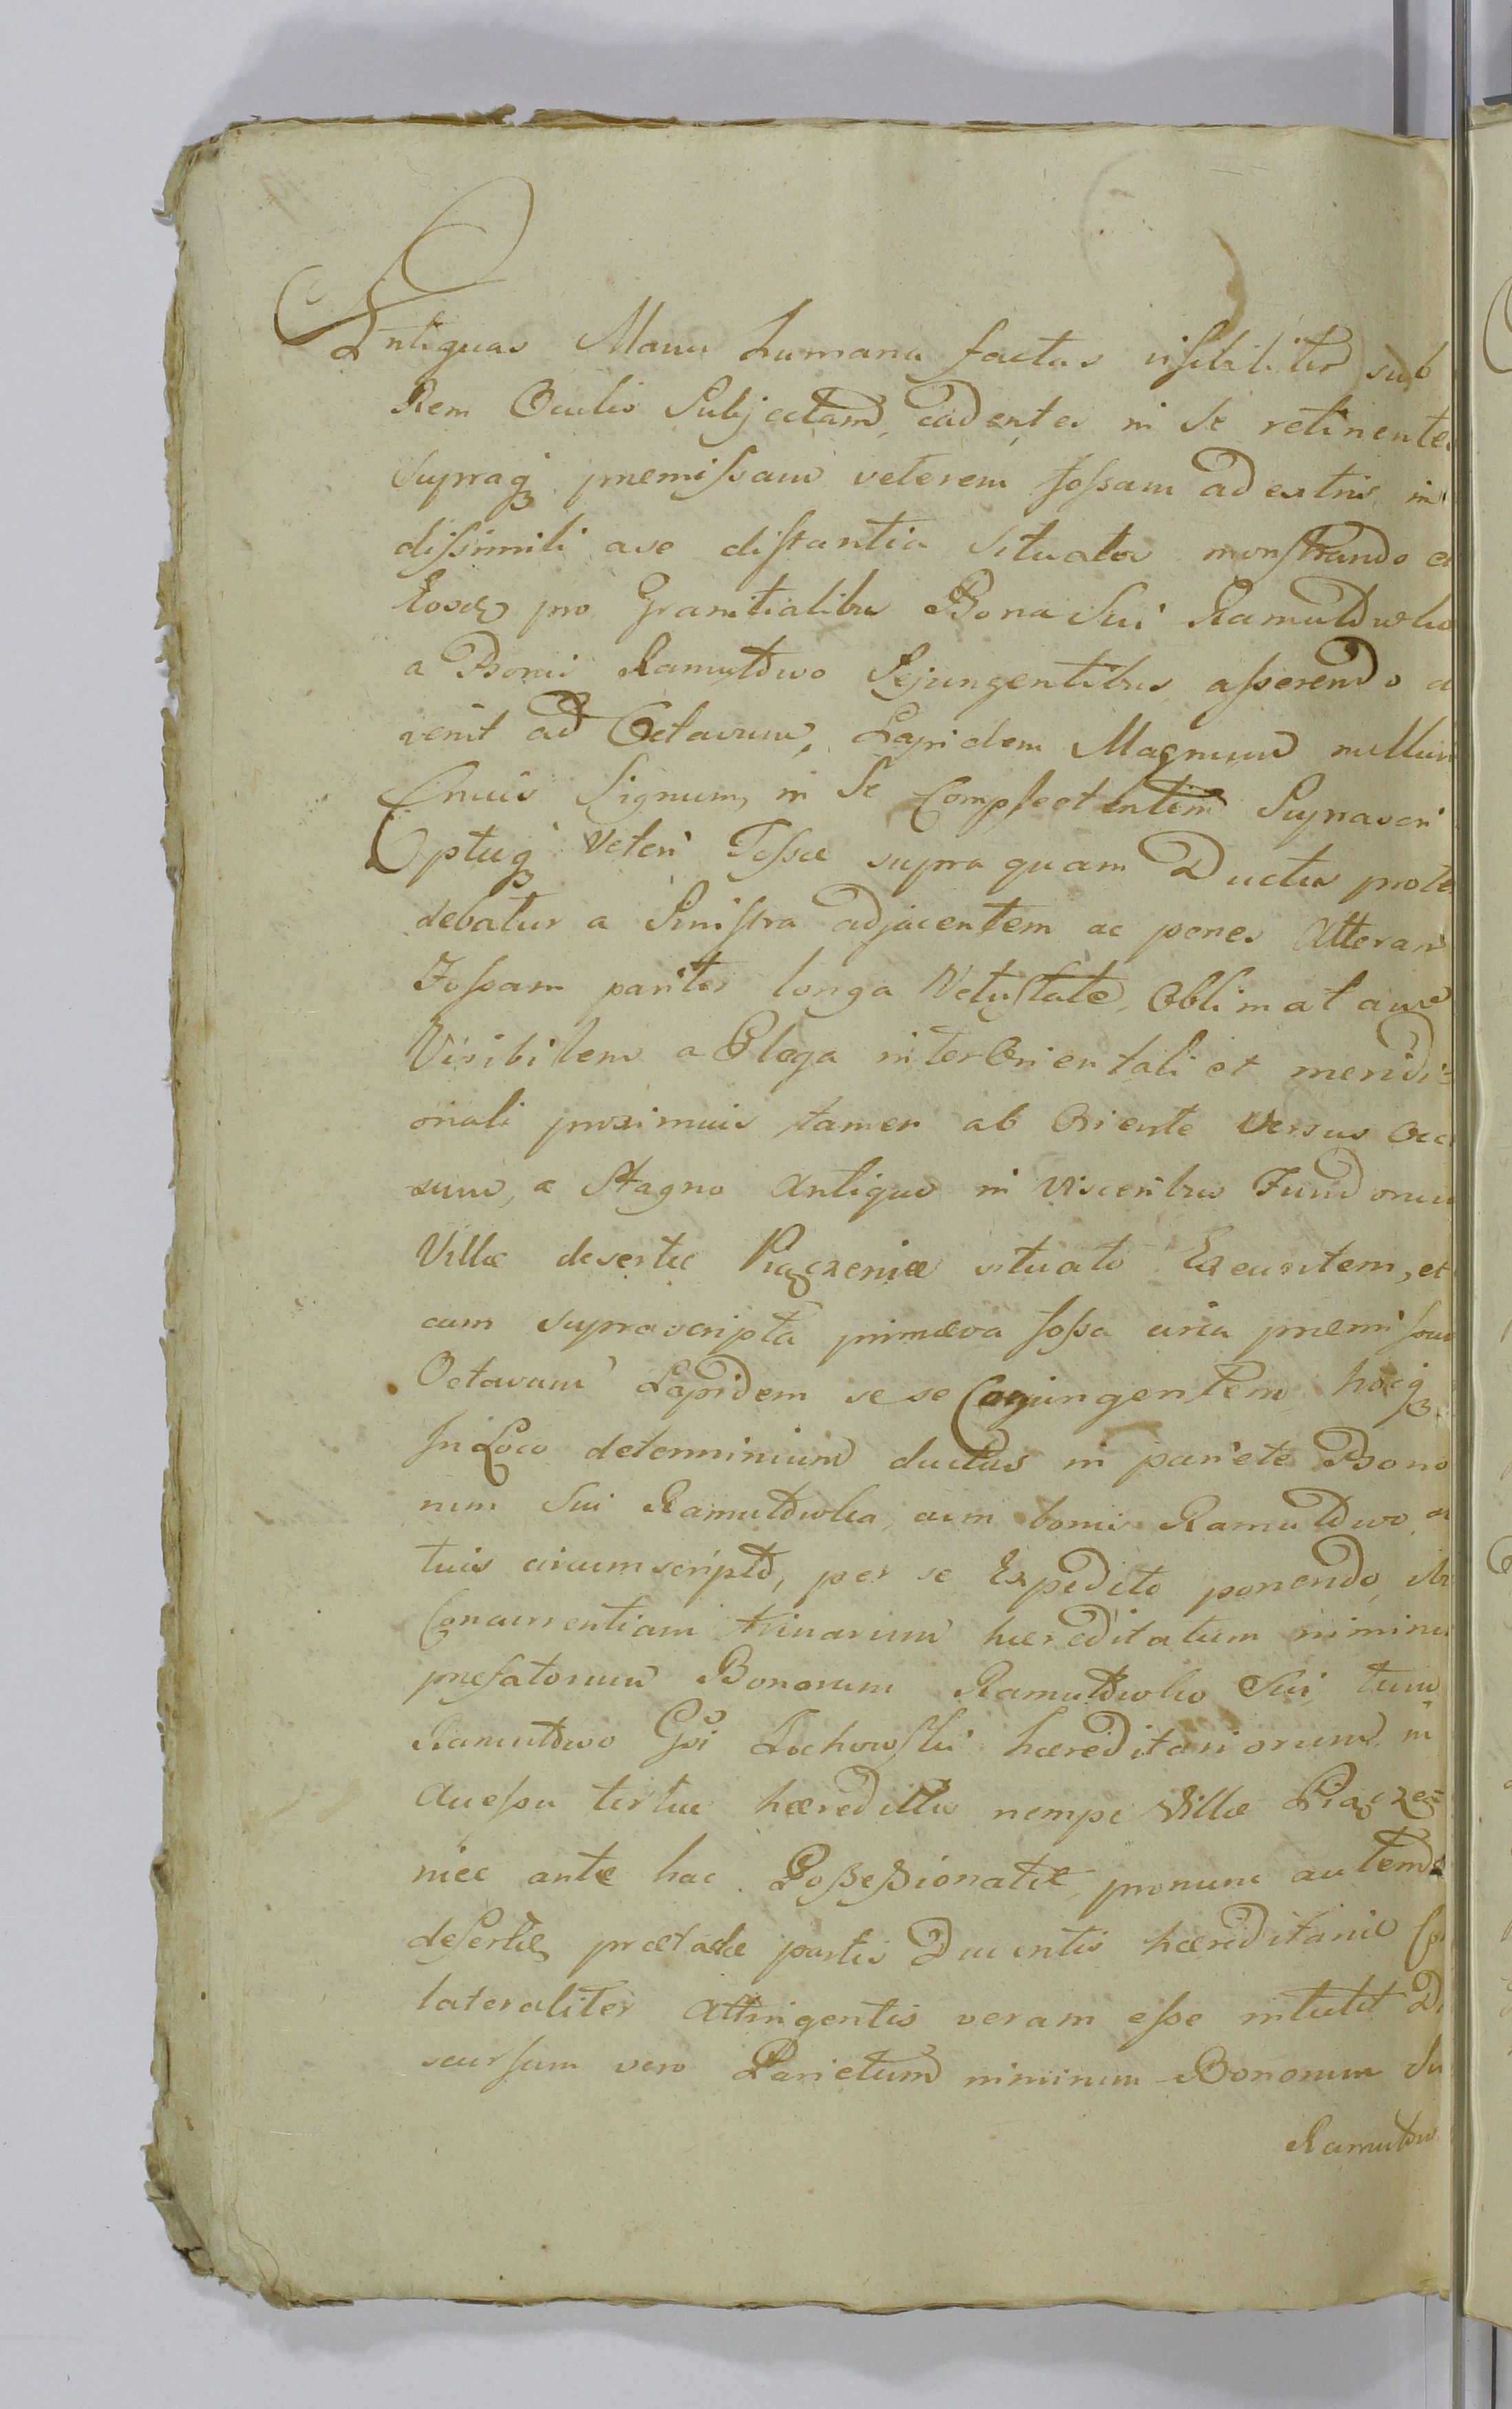 Antiquas Manu humana factas visibiliter sub
Rem Oculis Subjectam cadentes in Se retinentes
supraq premissam veterem fossam adextris in
dissimili a se distantia situatos monstrando et
Eosdem pro Granitialibus Bona Sui Ramułtówko
a Bonis Ramułtowo Sejungentibus asserendo a
venit ad Octavum, Lapidem Magnum nullum
Crucis Signum in Se Complectentem Suprascri
ptuq Veteri Fossæ supra quam Ductus prote
debatur a Sinistra adjacentem ac penes Alteram
Fossam pariter longa Vetustate Oblimatam
Visibilem a Plaga inter Orientali et meridi=
onali proximius tamen ab Oriente versus Occa
sum, a Stagno Antiquo in Visceribus Fundorum
Villæ desertæ Piączeniæ situato Exeuntem, et
cum suprascripta primæva fossa circa præmissum
Octavum Lapidem se se Conjungentem hocq
In Loco determinium ductus in pariete Bono
rum Sui Ramułtówko cum bonis Ramułtowo
tuis circumscripto, per se Expedito ponendo, ibi
Concurrentiam trinarum hæreditatum nimirum
prefatorum Bonorum Ramułtówko Sui tum
Ramułtowo Gsi Lochowski hæreditariorum in
Accessu tertiæ hæreditatis nempe Villæ Piącze=
niæ ante hac Possessionatæ, pro nunc autem
desertæ prætactæ partis Ducentis hæreditariæ Co
lateraliter Attingentis veram esse intulit Di
scursum vero Parietum nimirum Bonorum Su
Ramułtow